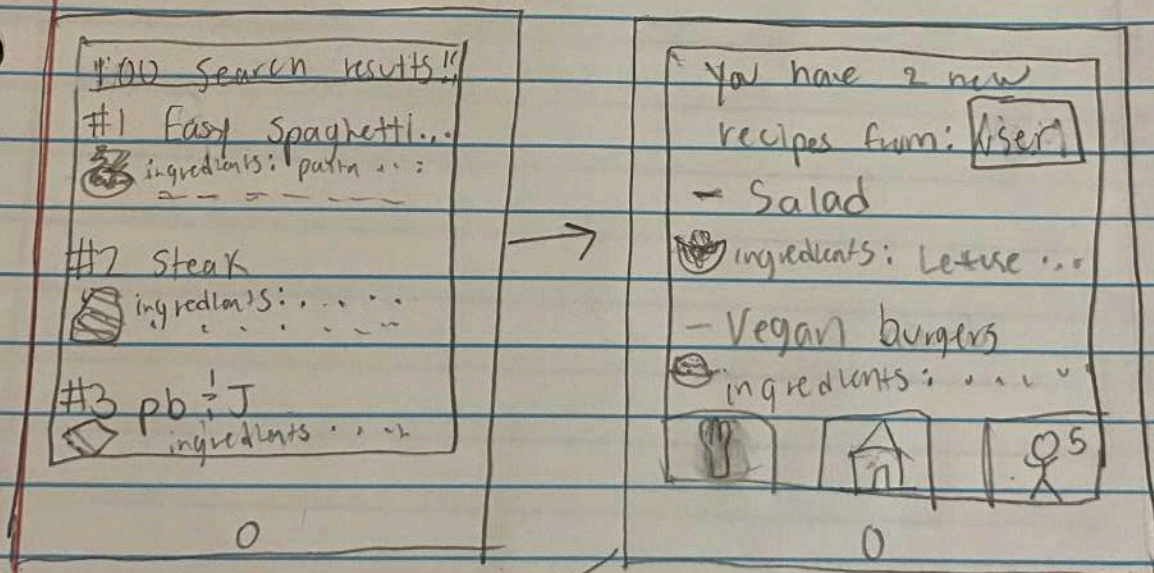 100 Search results!!
#1 Easy Spaghetti...
ingredients: pasta ...
#2 Steak
ingredients: .....
#3 pb & J
ingredients ....
You have 2 new
recipes from: User1
- Salad
ingredients: Lettuse ...
- Vegan burgers
ingredients: .....
S